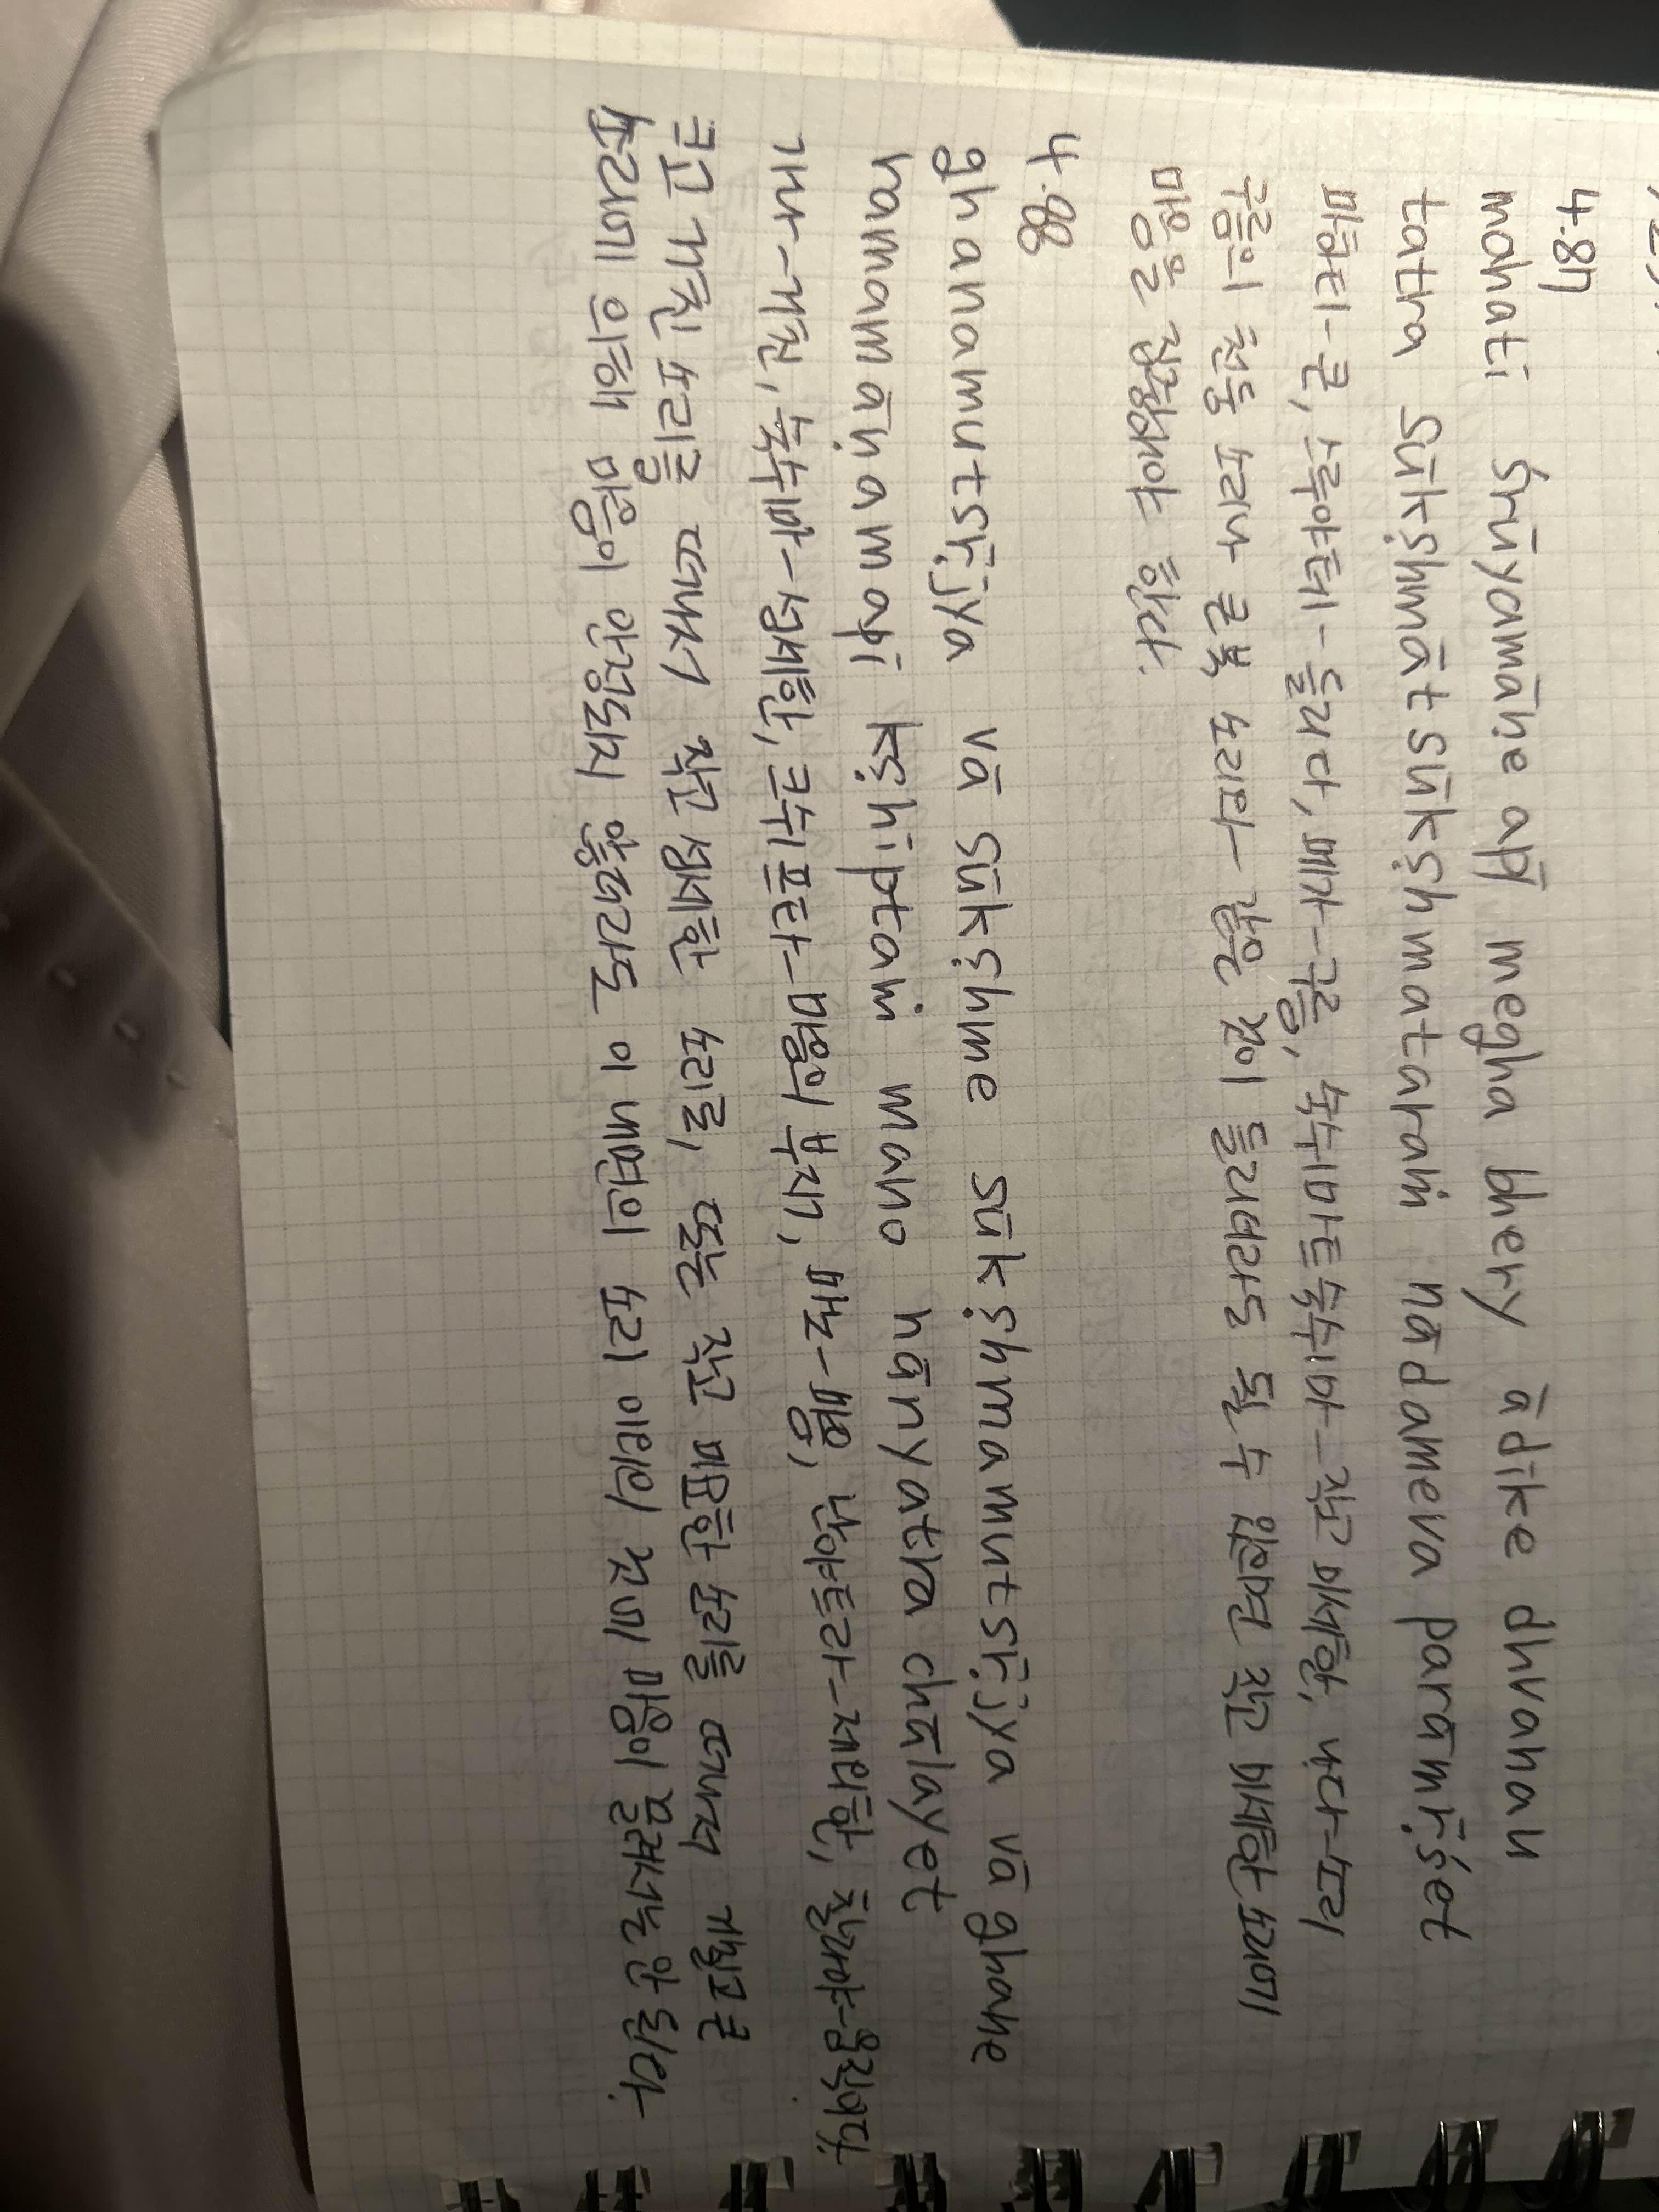 4.87
mahati śrūyamāhe apī megha bhery ādike dhvanau
tatra sūkṣhmāt sūkṣhmataraṁ nādameva parāmṛśet
마하티-큰, 스루야테-들리다, 메가-구름, 숙쉬마트숙쉬마-작고 미세한, 나다-소리
구름의 천둥 소리나 큰북 소리따 같은 것이 들리더라도 들을 수 있다면 작고 미세한 소리에
마음을 집중해야 한다.
4.88
ghanamutsṛjya vā sūkṣhme sūkṣhmamutsṛjya vā ghane
ramamāṇamapi kṣhiptaṁ mano nānyatra chālayet
가나-거친, 숙쉬마-섬세한, 크쉬프타-마음의 부지, 마노-마음, 난야트라-제외한, 찰라야-움직이다.
크고 거친 소리를 떠나서 작고 섬세한 소리로, 또는 작고 미묘한 소리를 떠나서 거칠고 큰
소리에 의해 마음이 안정되지 않더라도 이 내면의 소리 이외의 것에 마음이 움직여서는 안 된다.